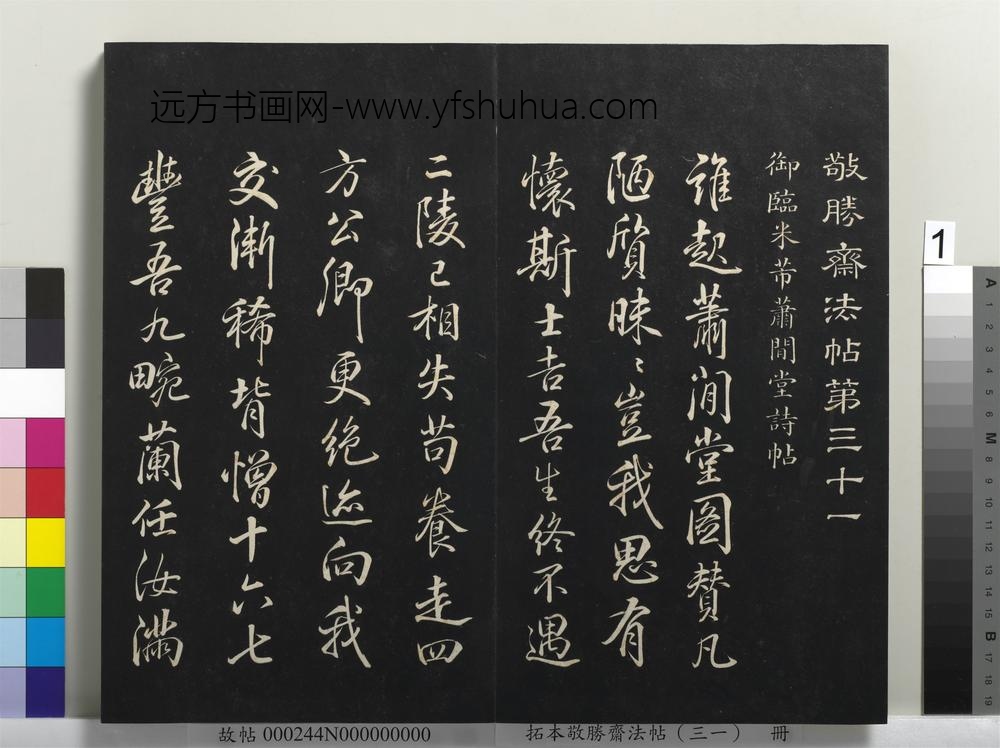 远方书画网-www.yfshuhua.com
敬勝齋法帖第三十一
御臨米芾蕭閒堂詩帖
誰起蕭閒堂圖贊凡
陋質昧〻豈我思有
懷斯士吉吾生終不遇
二陵已相失苟養走四
方公卿更絶迹向我
交漸稀背憎十六七
豐吾九畹蘭任汝滿
1
A
1
2
3
4
5
6
M
8
9
10
11
12
13
14
15
B
17
18
19
故帖 000244N000000000
拓本敬勝齋法帖（三一） 冊